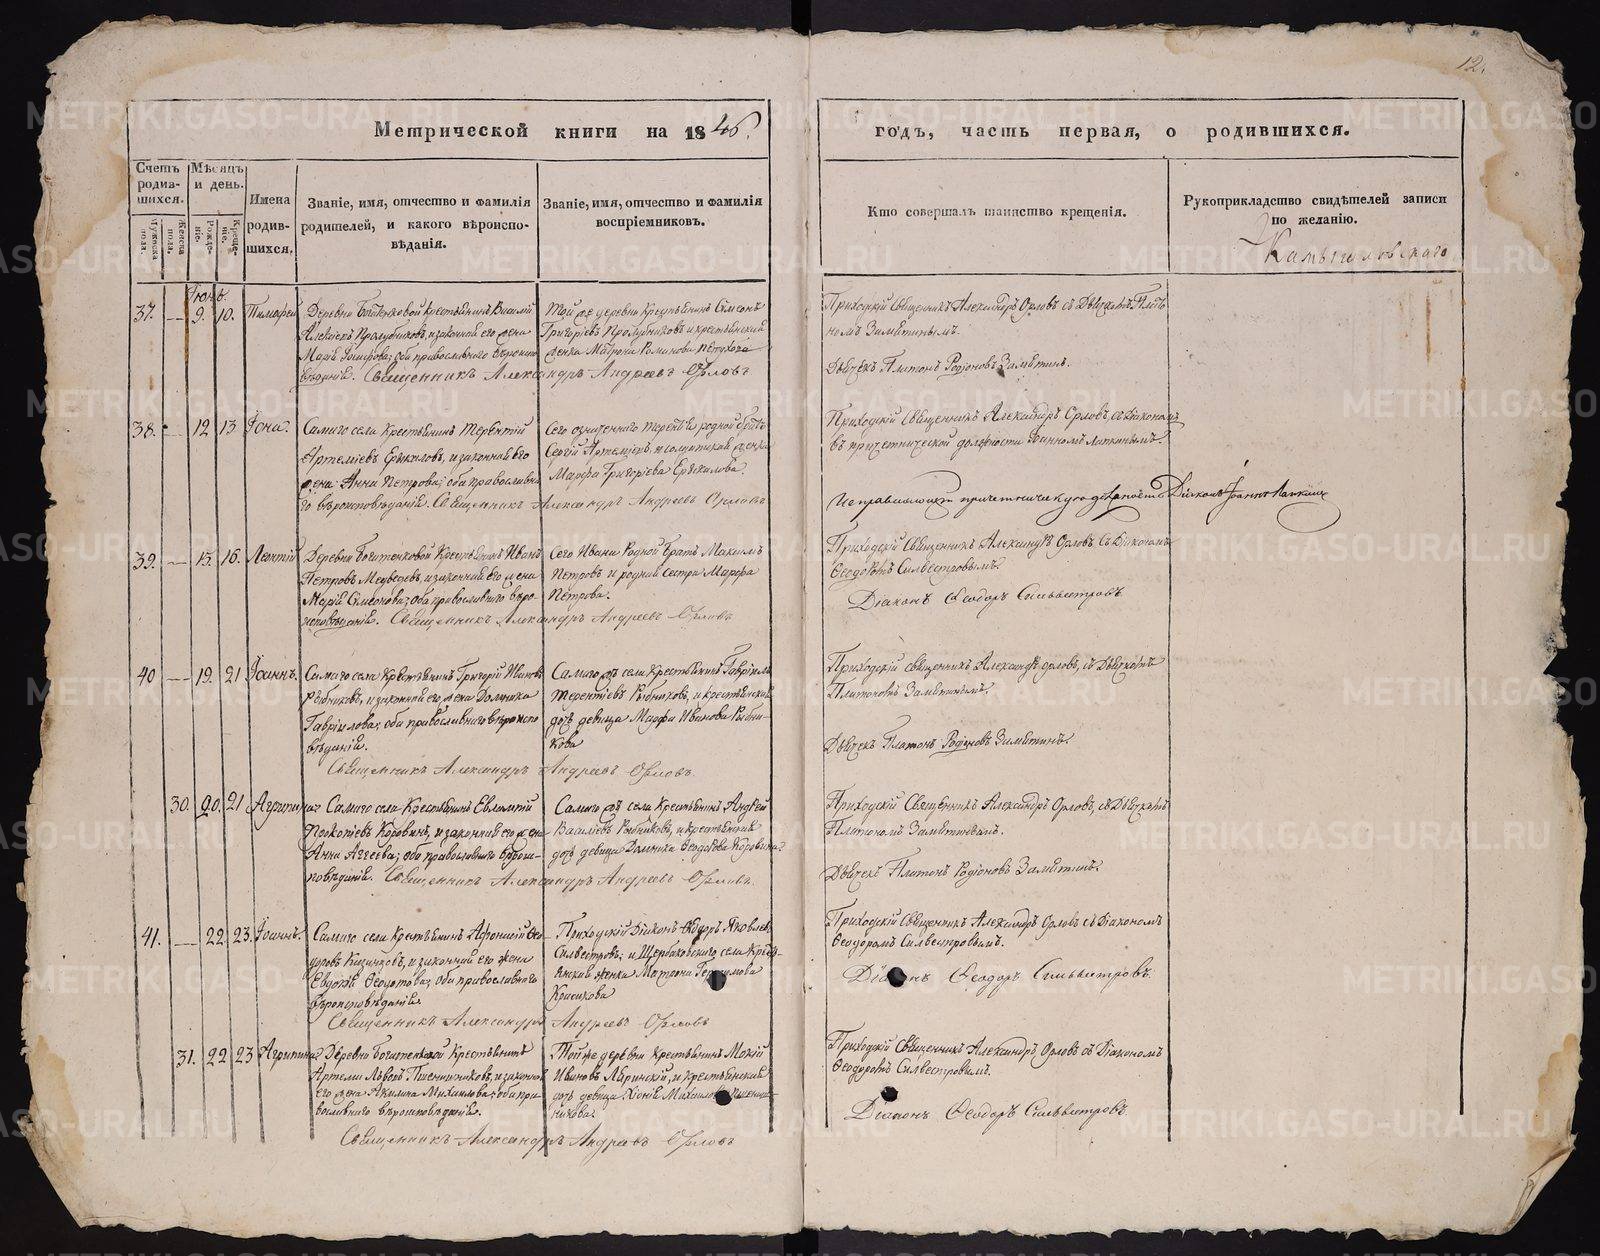 12.
Метрической книги на 1846.
годъ, часть первая, о родившихся.
Счетъ родив-шихся.
Мужеска пола.
Женска пола.
Мѣсяцъ и день.
Рожде-нія.
Креще-нія.
Имена родив-шихся.
Званіе, имя, отчество и фамилія родителей, и какого вѣроиспо-вѣданія.
Званіе, имя, отчество и фамилія воспріемниковъ.
Кто совершалъ таинство крещенія.
Рукоприкладство свидѣтелей записи по желанію.
Камышловскаго
37. — 9. 10. Тимофей
Крестьянинъ Василій
Алексѣевъ Пролубниковъ, и законная его жена
Марія; оба православнаго вѣроиспо
вѣданія. Священникъ Александръ Андреевъ Орловъ
Той же деревни Крестьянинъ Симеонъ
Григорьевъ Пролубниковъ и крестьянская
женка Матрона
Приходскій Священникъ Александръ Орловъ съ Дьячкомъ Плато
номъ Замятинымъ.
Дьячекъ Платонъ Родіоновъ Замятинъ.
38. — 12 13 Іона.
Самаго села Крестьянинъ Терентій
Артемьевъ, и законная его
жена Анна Петрова; оба православна
го вѣроисповѣданія. Священникъ Александръ Андреевъ Орловъ
Сего означеннаго Терентія родной братъ
Сергій Артемьевъ, и женка
Марфа Григорьева
Приходскій Священникъ Александръ Орловъ, съ Діакономъ
въ причетнической должности Іоанномъ Лапкинымъ.
Исправляющій причетническую должность Діаконъ Іоаннъ Лапкинъ
39. — 15. 16. Леонтій
Деревни Крестьянинъ Иванъ
Петровъ Медведевъ, и законная его жена
Марія Симеонова; оба православнаго вѣро-
исповѣданія. Священникъ Александръ Андреевъ Орловъ
Сего Ивана Родной братъ Максимъ
Петровъ и родная сестра Марфа
Петрова.
Приходскій Священникъ Александръ Орловъ съ Діакономъ
Ѳеодоромъ Сильвестровымъ.
Діаконъ Ѳеодоръ Сильвестровъ
40 — 19. 21 Іоаннъ.
Самаго села Крестьянинъ Григорій Ивановъ
Рыбниковъ, и законная его жена Домника
Гавріилова; оба православнаго вѣроиспо
вѣданія.
Священникъ Александръ Андреевъ Орловъ.
Самаго же села Крестьянинъ Гавріилъ
Терентьевъ Рыбниковъ, и крестьянская
дочь девица Марфа Иванова Рыбни
кова
Приходскій священникъ Александръ Орловъ, съ Дьячкомъ
Платономъ Замятинымъ.
Дьячекъ Платонъ Родіоновъ Замятинъ.
30. 20. 21 Агрипина
Самаго села Крестьянинъ Евлампій
Прокопьевъ Коровинъ, и законная его жена
Анна Аггеева; оба православнаго вѣроис-
повѣданія. Священникъ Александръ Андреевъ Орловъ.
Самаго же села Крестьянинъ Андрей
Васильевъ Рыбниковъ, и крестьянская
дочь девица Домника Ѳеодорова Коровина
Приходскій Священникъ Александръ Орловъ, съ Дьячкомъ
Платономъ Замятинымъ.
Дьячекъ Платонъ Родіоновъ Замятинъ.
41. — 22. 23. Іоаннъ.
Самаго села Крестьянинъ Афанасій Ѳео-
доровъ, и законная его жена
Евдокія; оба православнаго
вѣроисповѣданія.
Священникъ Александръ Андреевъ Орловъ
Приходскій Діаконъ Ѳеодоръ Яковлевъ
Сильвестровъ; и Щербаковскаго села Кресть-
янская женка Матрона
Красикова
Приходскій Священникъ Александръ Орловъ съ Діакономъ
Ѳеодоромъ Сильвестровымъ.
Діаконъ Ѳеодоръ Сильвестровъ.
31. 22 23 Агрипина
Деревни Крестьянинъ
Артемій Львовъ Пшеничниковъ, и законная
его жена Акилина Михаилова; оба пра-
вославнаго вѣроисповѣданія.
Священникъ Александръ Андреевъ Орловъ
Той же деревни Крестьянинъ Мокій
Ивановъ, и Крестьянская
дочь девица Хіонія Михаилова Пшенич-
никова.
Приходскій Священникъ Александръ Орловъ съ Діакономъ
Ѳеодоромъ Сильвестровымъ.
Діаконъ Ѳеодоръ Сильвестровъ.
METRIKI.GASO-URAL.RU